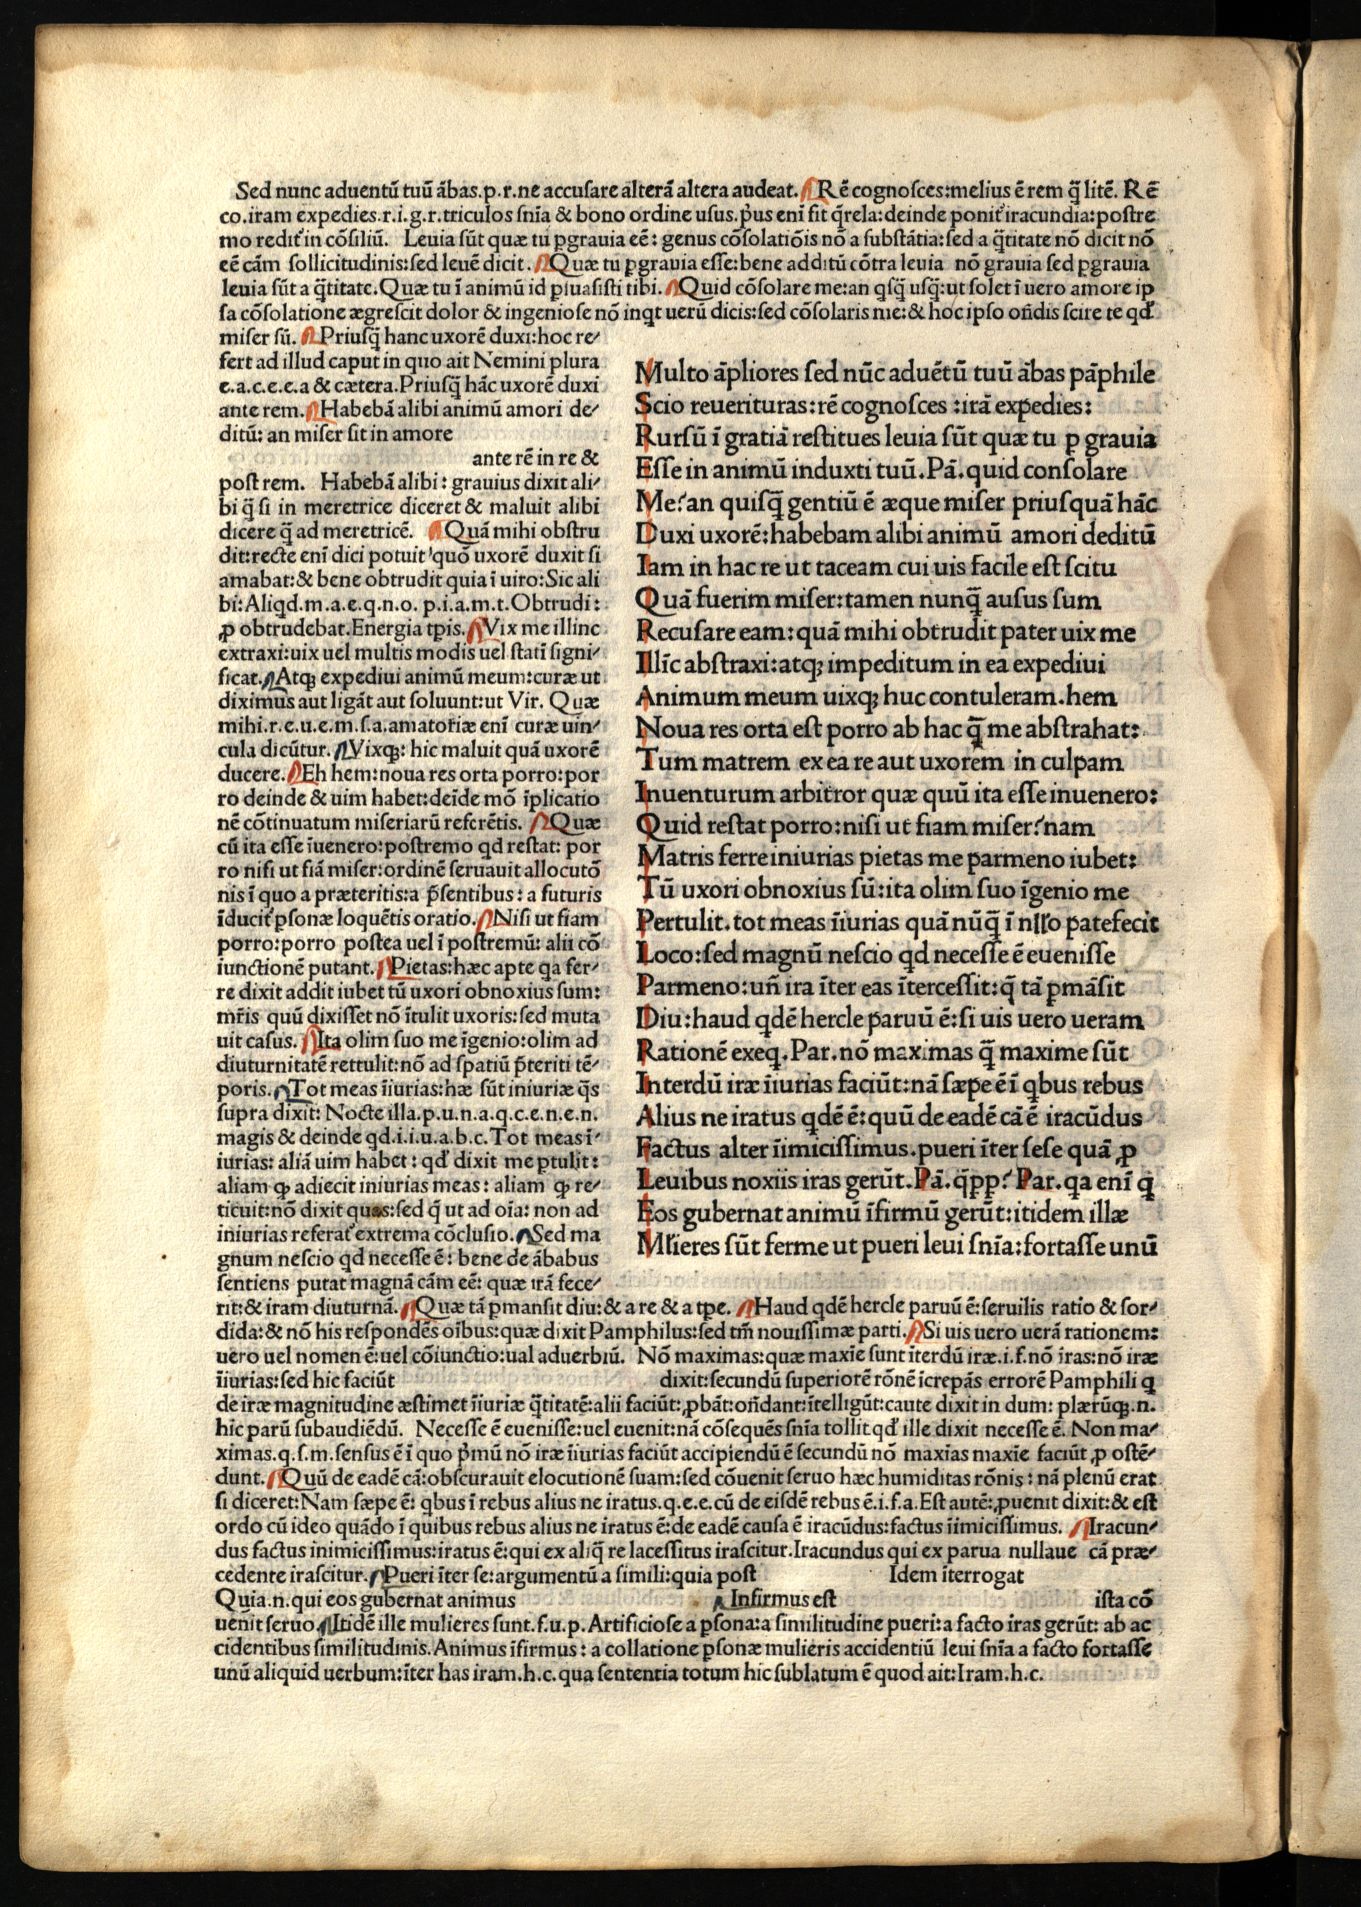 Sed nunc aduentū tuū ābas.p.r.ne accusare alterā altera audeat. Rē cognosces:melius ē rem q̄ litē. Rē
co.iram expedies.r.i.g.r.triculos sn̄ia & bono ordine usus.p̄us enī fit q̄rela:deinde ponit᷑ iracundia:postre
mo redit᷑ in cōsiliū. Leuia sūt quæ tu ꝑgrauia eē: genus cōsolatiōis nō a substātia:sed a q̄titate nō dicit nō
eē cām sollicitudinis:sed leuē dicit. Quæ tu ꝑgrauia esse:bene additū cōtra leuia nō grauia sed ꝑgrauia
leuia sūt a q̄titate.Quæ tu ī animū id ꝑsuasisti tibi. Quid cōsolare me:an qsq̄ usq̄:ut solet ī uero amore ip
sa cōsolatione ægrescit dolor & ingeniose nō inqt uerū dicis:sed cōsolaris me:& hoc ipso on̄dis scire te qd'
miser sū. Priusq̄ hanc uxorē duxi:hoc re-
fert ad illud caput in quo ait Nemini plura
e.a.c.e.e.a & cætera.Priusq̄ hāc uxorē duxi
ante rem. Habebā alibi animū amori de-
ditū: an miser sit in amore
ante rē in re &
post rem. Habebā alibi: grauius dixit ali-
bi q̄ si in meretrice diceret & maluit alibi
dicere q̄ ad meretricē. Quā mihi obstru
dit:recte enī dici potuit quō uxorē duxit si
amabat:& bene obtrudit quia ī uiro:Sic ali
bi:Aliqd.m.a.e.q.n.o. p.i.a.m.t.Obtrudi:
ꝓ obtrudebat.Energia tp̄is. Vix me illinc
extraxi:uix uel multis modis uel statī signi-
ficat. Atqꝫ expediui animū meum:curæ ut
diximus aut ligāt aut soluunt:ut Vir. Quæ
mihi.r.e.u.e.m.s.a.amatoriæ enī curæ uin-
cula dicūtur. Vixqꝫ: hic maluit quā uxorē
ducere. Eh hem:noua res orta porro:por
ro deinde & uim habet:deīde mō īplicatio
nē cōtinuatum miseriarū referētis. Quæ
cū ita esse īuenero:postremo qd restat: por
ro nisi ut fiā miser:ordinē seruauit allocutō
nis ī quo a præteritis:a p̄sentibus: a futuris
īducit᷑ ꝑsonæ loquētis oratio. Nisi ut fiam
porro:porro postea uel ī postremū: alii cō
iunctionē putant. Pietas:hæc apte qa fer-
re dixit addit iubet tū uxori obnoxius sum:
mr̄is quū dixisset nō ītulit uxoris:sed muta
uit casus. Ita olim suo me īgenio:olim ad
diuturnitatē rettulit:nō ad spatiū p̄teriti tē-
poris. Tot meas īiurias:hæ sūt iniuriæ q̄s
supra dixit: Nocte illa.p.u.n.a.q.c.e.n.e.n.
magis & deinde qd.i.i.u.a.b.c.Tot meas ī-
iurias: aliā uim habet: qd' dixit me ꝑtulit:
aliam ꝙ adiecit iniurias meas: aliam ꝙ re-
ticuit:nō dixit quas:sed q̄ ut ad oīa: non ad
iniurias referat᷑ extrema cōclusio. Sed ma
gnum nescio qd necesse ē: bene de ābabus
sentiens putat magnā cām eē: quæ irā fece-
Multo āpliores sed nūc aduētū tuū ābas pāphile
Scio reuerituras:rē cognosces :irā expedies:
Rursū ī gratiā restitues leuia sūt quæ tu ꝑ grauia
Esse in animū induxti tuū.Pā.quid consolare
Me?an quisq̄ gentiū ē æque miser priusquā hāc
Duxi uxorē:habebam alibi animū amori deditū
Iam in hac re ut taceam cui uis facile est scitu
Quā fuerim miser:tamen nunq̄ ausus sum
Recusare eam:quā mihi obtrudit pater uix me
Illīc abstraxi:atqꝫ impeditum in ea expediui
Animum meum uixqꝫ huc contuleram.hem
Noua res orta est porro ab hac q̄ me abstrahat:
Tum matrem ex ea re aut uxorem in culpam
Inuenturum arbitror quæ quū ita esse inuenero:
Quid restat porro:nisi ut fiam miser?nam
Matris ferre iniurias pietas me parmeno iubet:
Tū uxori obnoxius sū:ita olim suo īgenio me
Pertulit.tot meas īiurias quā nūq̄ ī nllo patefecit
Loco:sed magnū nescio qd necesse ē euenisse
Parmeno:un̄ ira īter eas ītercessit:q̄ tā ꝑmāsit
Diu:haud qdē hercle paruū ē:si uis uero ueram
Rationē exeq.Par.nō maximas q̄ maxime sūt
Interdū iræ īiurias faciūt:nā sæpe ē ī qbus rebus
Alius ne iratus qdē ē:quū de eadē cā ē iracūdus
Factus alter īimicissimus.pueri īter sese quā ꝓ
Leuibus noxiis iras gerūt.Pā.q̄pp?Par.qa enī q
Eos gubernat animū īfirmū gerūt:itidem illæ
Ml̄ieres sūt ferme ut pueri leui sn̄ia:fortasse unū
rit:& iram diuturnā. Quæ tā ꝑmansit diu:& a re & a tp̄e. Haud qdē hercle paruū ē:seruilis ratio & sor-
dida:& nō his respondēs oībus:quæ dixit Pamphilus:sed tm̄ nouissimæ parti. Si uis uero uerā rationem:
uero uel nomen ē:uel cōiunctio:ual aduerbiū. Nō maximas:quæ maxīe sunt īterdū iræ.i.f.nō īras:nō iræ
īiurias:sed hic faciūt dixit:secundū superiorē rōnē īcrepās errorē Pamphili q
de iræ magnitudine æstimet īiuriæ q̄titatē:alii faciūt:ꝓbāt:on̄dant:ītelligūt:caute dixit in dum: plærūqꝫ.n.
hic parū subaudiēdū. Necesse ē euenisse:uel euenit:nā cōsequēs sn̄ia tollit qd' ille dixit necesse ē. Non ma-
ximas.q.s.m.sensus ē ī quo p̄mū nō iræ īiurias faciūt accipiendū ē secundū nō maxīas maxīe faciūt ꝓ ostē-
dunt. Quū de eadē cā:obscurauit elocutionē suam:sed cōuenit seruo hæc humiditas rōnis: nā plenū erat
si diceret:Nam sæpe ē: qbus ī rebus alius ne iratus.q.e.e.cū de eisdē rebus ē.i.f.a.Est autē:ꝓuenit dixit:& est
ordo cū ideo quādo ī quibus rebus alius ne iratus ē:de eadē causa ē iracūdus:factus īimicissimus. Iracun-
dus factus inimicissimus:iratus ē:qui ex aliq̄ re lacessitus irascitur.Iracundus qui ex parua nullaue cā præ-
cedente irascitur. Pueri īter se:argumentū a simili:quia post Idem īterrogat
Quia.n.qui eos gubernat animus Infirmus est ista cō
uenit seruo. Itidē ille mulieres sunt.f.u.p.Artificiose a ꝑsona:a similitudine pueri:a facto iras gerūt: ab ac
cidentibus similitudinis.Animus īfirmus: a collatione ꝑsonæ mulieris accidentiū leui sn̄ia a facto fortasse
unū aliquid uerbum:īter has iram.h.c.qua sententia totum hic sublatum ē quod ait:Iram.h.c.